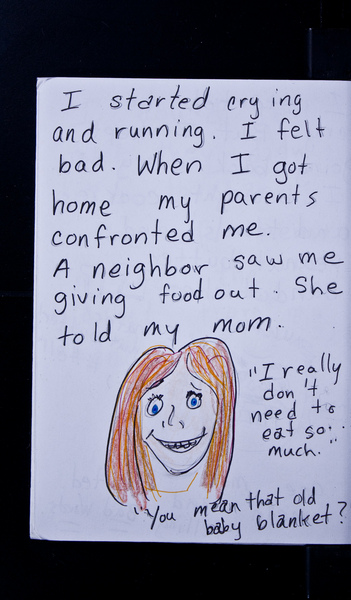 I started crying
and running. I felt
bad. When I got
home my parents
confronted me.
A neighbor saw me
giving food out. She
told my mom.
"I really
don't
need to
eat so
much."
"You mean that old
baby blanket?